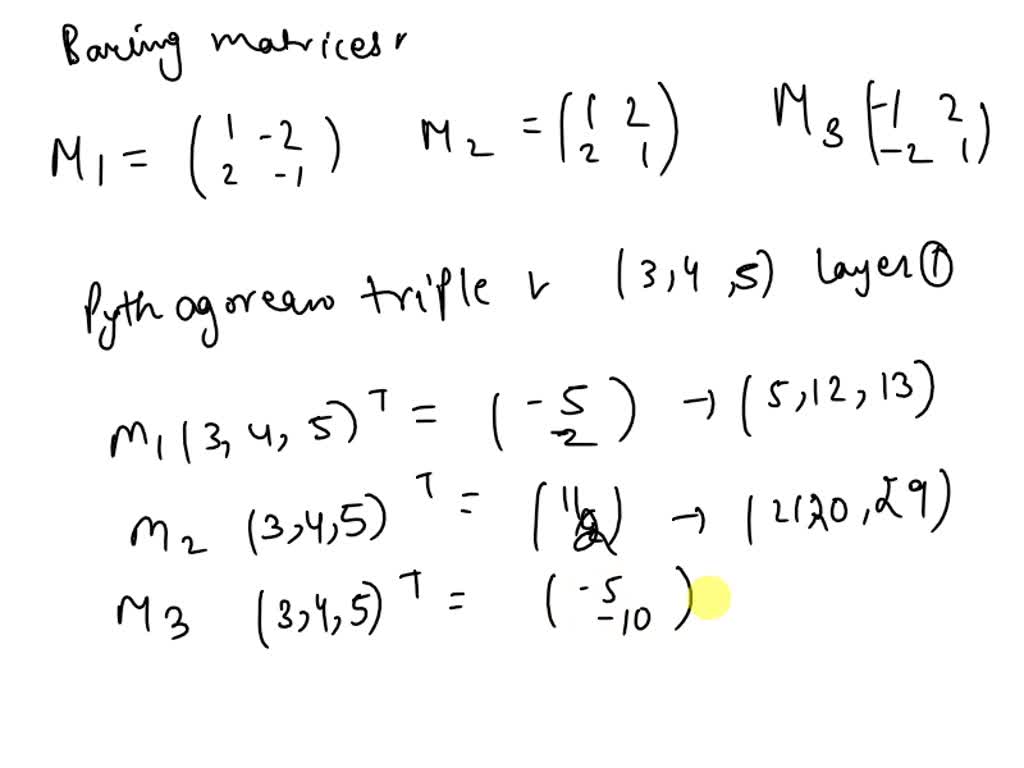 Baring matrices
M1 = (1 -2 2 -1) M2 = (1 2 2 1) M3 (-1 2 -2 1)
Pythagorean triple (3,4,5) layer ①
M1 (3, 4, 5)^T = (-5 -2) → (5,12,13)
M2 (3,4,5)^T = (11) → (21,20,29)
M3 (3,4,5)^T = (-5 -10)